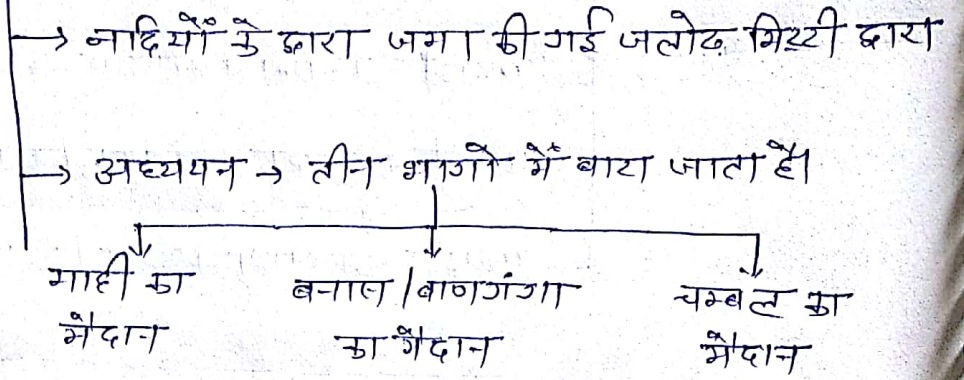 → नदियों के द्वारा जमा की गई जलोढ़ मिट्टी द्वारा
→ अध्ययन → तीन भागो में बाटा जाता है।
माही का मैदान
बनास / बाणगंगा का मैदान
चम्बल का मैदान